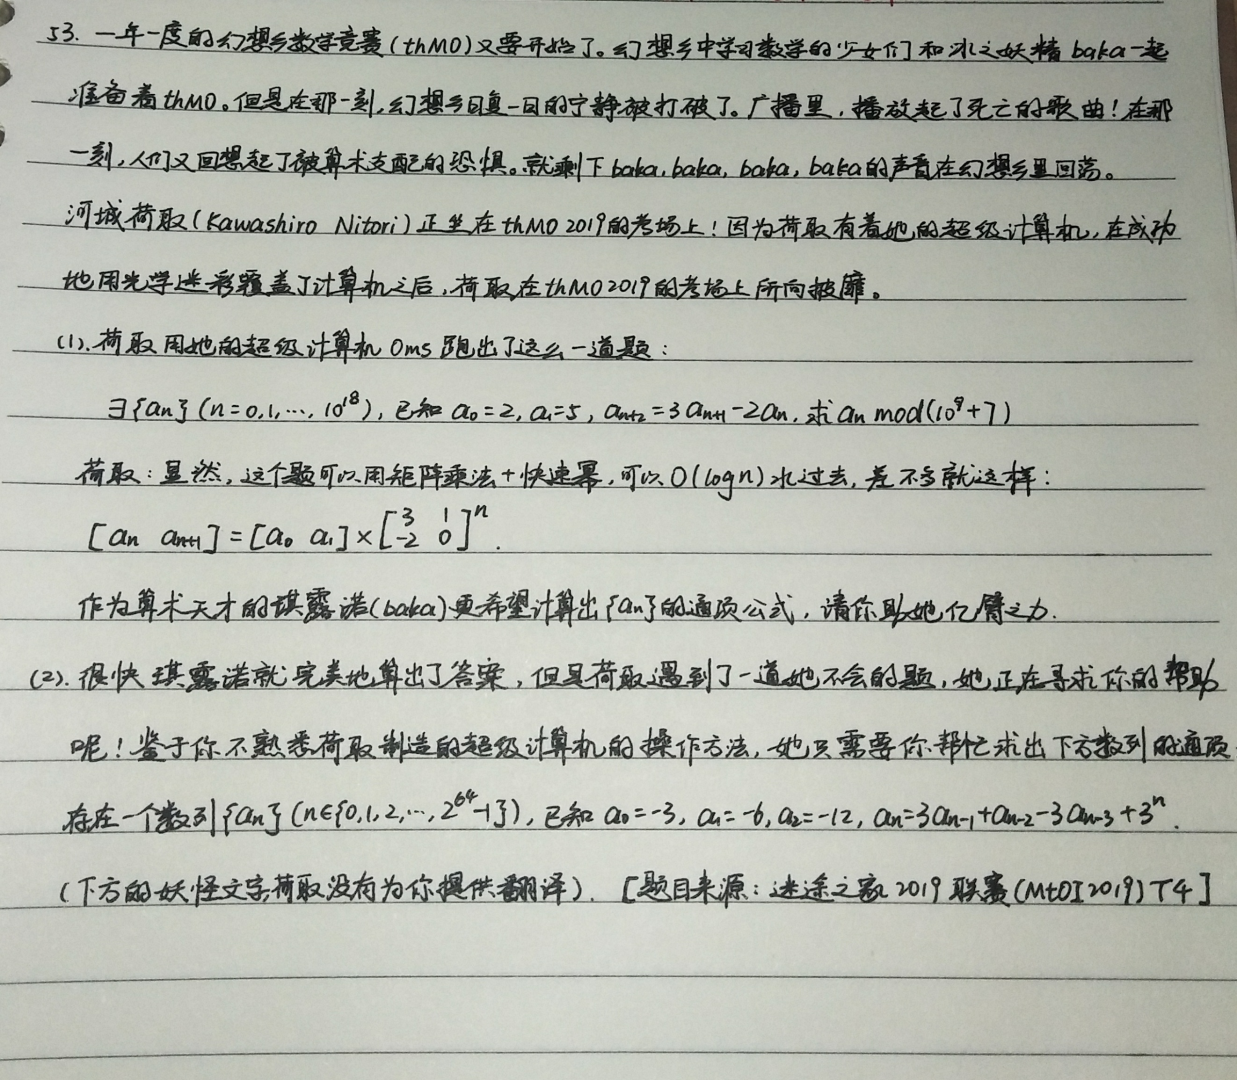 53. 一年一度的幻想乡数学竞赛(thMO)又要开始了。幻想乡中学习数学的少女们和冰之妖精baka一起
准备着thMO。但是在那一刻,幻想乡日复一日的宁静被打破了。广播里,播放起了死亡的歌曲!在那
一刻,人们又回想起了被算术支配的恐惧。就剩下baka,baka,baka,baka的声音在幻想乡里回荡。
河城荷取(Kawashiro Nitori)正坐在thMO 2019的考场上!因为荷取有着她的超级计算机,在成功
地用光学迷彩覆盖了计算机之后,荷取在thMO2019的考场上所向披靡。
(1).荷取用她的超级计算机0ms跑出了这么一道题:
∃{aₙ}(n=0,1,…,10¹⁸),已知a₀=2,a₁=5,aₙ₊₂=3aₙ₊₁-2aₙ.求aₙ mod(10⁹+7)
荷取:显然,这个题可以用矩阵乘法+快速幂,可以O(logn)水过去,差不多就这样:
[aₙ aₙ₊₁]=[a₀ a₁]×[3 1
-2 0]ⁿ.
作为算术天才的琪露诺(baka)更希望计算出{aₙ}的通项公式,请你助她亿臂之力.
(2).很快琪露诺就完美地算出了答案,但是荷取遇到了一道她不会的题,她正在寻求你的帮助
呢!鉴于你不熟悉荷取制造的超级计算机的操作方法,她只需要你帮忙求出下方数列的通项
存在一个数列{aₙ}(n∈{0,1,2,…,2⁶⁴-1}),已知a₀=-3,a₁=-6,a₂=-12,aₙ=3aₙ₋₁+aₙ₋₂-3aₙ₋₃+3ⁿ.
(下方的妖怪文字荷取没有为你提供翻译).[题目来源:迷途之家2019联赛(MtOI2019)T4]